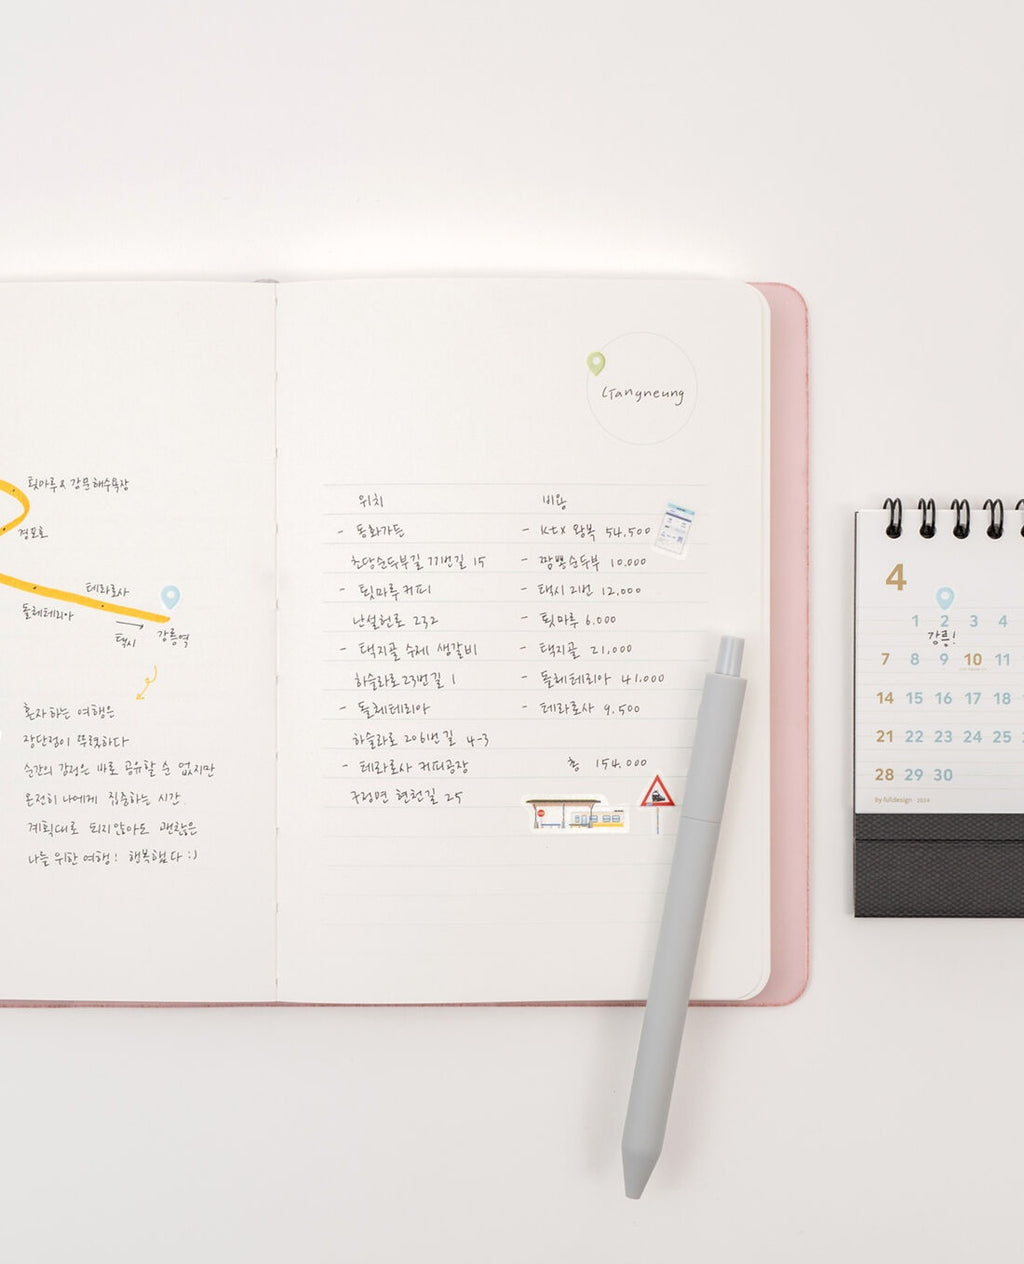 툇마루 & 강문해수욕장
경포호
테라로사
돌체테리아
택시
강릉역
혼자 하는 여행은
장단점이 뚜렷하다
순간의 감정은 바로 공유할 순 없지만
온전히 나에게 집중하는 시간
계획대로 되지 않아도 괜찮은
나를 위한 여행! 행복했다 :)
Gangneung
위치
- 동화가든
초당순두부길 77번길 15
- 툇마루 커피
난설헌로 232
- 택지골 수제 생갈비
하슬라로 23번길 1
- 돌체테리아
하슬라로 206번길 4-3
- 테라로사 커피공장
구정면 현천길 25
비용
- ktx 왕복 54,500
- 짬뽕순두부 10.000
- 택시 2번 12,000
- 툇마루 6.000
- 택지골 21,000
- 돌체테리아 41.000
- 테라로사 9,500
총 154.000
4
1 2 3 4
강릉!
7 8 9 10 11
14 15 16 17 18
21 22 23 24 25
28 29 30